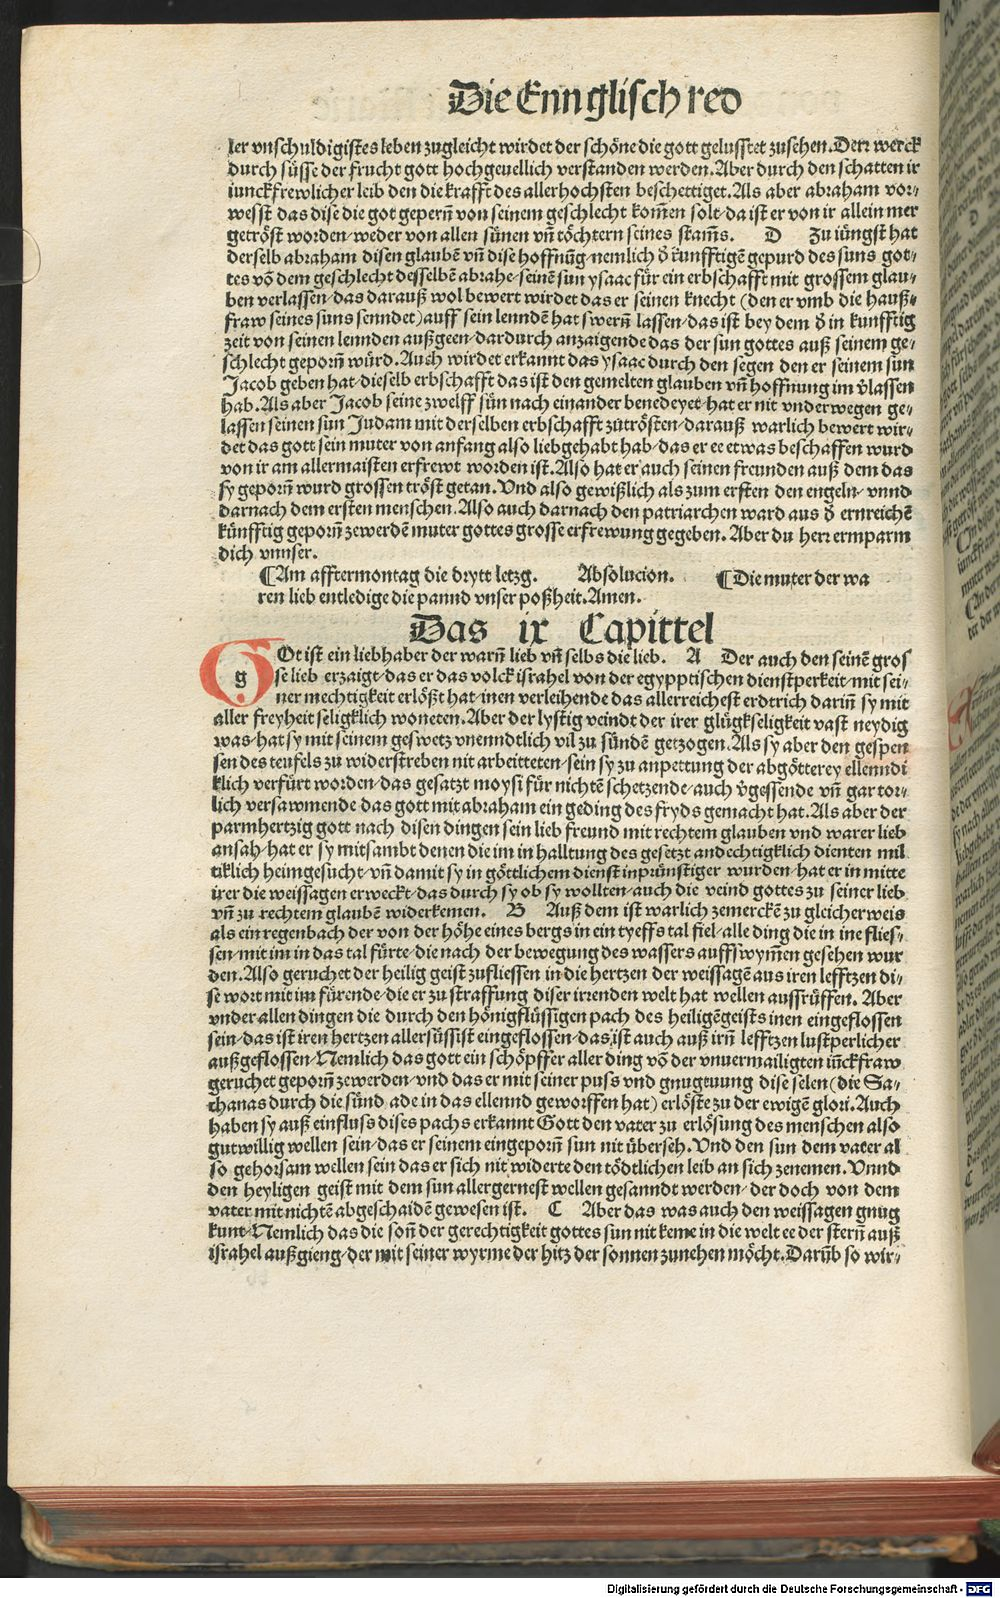 Die Ennglisch red
ler vnschuldigistes leben zugleicht wirdet der schöne die gott gelusstet zusehen. Derr werck
durch süsse der frucht gott hochgeuellich verstanden werden. Aber durch den schatten ir
iunckfrewlicher leib den die krafft des allerhochsten beschettiget. Als aber abraham vor⸗
wesst das dise die got geperñ von seinem geschlecht kom̄en solt/da ist er von ir allein mer
getröst worden/weder von allen sünen vñ töchtern seines stam̄s. D Zu iüngst hat
derselb abraham disen glaubẽ vñ dise hoffnũg/nemlich d̕ künfftigẽ gepurd des suns got⸗
tes võ dem geschlecht desselbẽ abrahe/seinẽ sun ysaac für ein erbschafft mit grossem glau⸗
ben verlassen/das darauß wol bewert wirdet das er seinen knecht (den er vmb die hauß⸗
fraw seines suns senndet) auff sein lenndẽ hat swerñ lassen/das ist bey dem d̕ in kunfftig
zeit von seinen lennden außgeen/dardurch anzaigende das der sun gottes auß seinem ge⸗
schlecht geporñ würd. Auch wirdet erkannt das ysaac durch den segen den er seinem sün
Jacob geben hat/dieselb erbschafft das ist den gemelten glauben vñ hoffnung im v̕lassen
hab. Als aber Jacob seine zwelff sün nach einander benedeyet/hat er nit vnderwegen ge⸗
lassen seinen sun Judam mit derselben erbschafft zůtrösten/darauß warlich bewert wir⸗
det das gott sein muter von anfang also liebgehabt hab/das er ee etwas beschaffen wurd
von ir am allermaisten erfrewt worden ist. Also hat er auch seinen freunden auß dem das
sy geporñ wurd grossen tröst getan. Vnd also gewißlich als zum ersten den engeln/vnnd
darnach dem ersten menschen. Also auch darnach den patriarchen ward aus d̕ ernreichẽ
künfftig geporñ zewerdẽ muter gottes grosse erfrewung gegeben. Aber du herr ermparm
dich vnnser.
¶Am afftermontag die drytt letzg. Absolucion. ¶Die muter der wa
ren lieb entledige die pannd vnser poßheit. Amen.
Das ix Capittel
g
GOt ist ein liebhaber der warñ lieb vñ selbs die lieb. A Der auch den seinẽ gros
se lieb erzaigt/das er das volck israhel von der egypptischen dienstperkeit/mit sei⸗
ner mechtigkeit erlößt hat/inen verleihende das allerreichest erdtrich dariñ sy mit
aller freyheit seligklich woneten. Aber der lystig veindt der irer glügkseligkeit vast neydig
was/hat sy mit seinem geswetz vnenndtlich vil zu sündẽ getzogen. Als sy aber den gespen
sen des teufels zu widerstreben nit arbeitteten/sein sy zu anpettung der abgötterey ellenndi
klich verfürt worden/das gesatzt moysi für nichtẽ schetzende/auch v̕gessende vñ gar tor⸗
lich versawmende das gott mit abraham ein geding des fryds gemacht hat. Als aber der
parmhertzig gott nach disen dingen sein lieb freund mit rechtem glauben vnd warer lieb
ansah/hat er sy mitsambt denen die im in halltung des gesetzt andechtigklich dienten mil
tiklich heimgesucht/vñ damit sy in göttlichem dienst inprünstiger wurden/hat er in mitte
irer die weissagen erweckt/das durch sy ob sy wollten/auch die veind gottes zu seiner lieb
vñ zu rechtem glaubẽ widerkemen. B Auß dem ist warlich zemerckẽ zu gleicher weis
als ein regenbach der von der höhe eines bergs in ein tyeffs tal fiel/alle ding die in ine flies⸗
sen/mit im in das tal fürte/die nach der bewegung des wassers auffswym̄en gesehen wur
den. Also geruchet der heilig geist zufliessen in die hertzen der weissagẽ aus iren lefftzen di⸗
se wort mit im fürende/die er zu straffung diser irrenden welt hat wellen aussrüffen. Aber
vnder allen dingen die durch den hönigflüssigen pach des heiligẽ geists inen eingeflossen
sein/das ist iren hertzen allersüssist eingeflossen/das ist auch auß irñ lefftzen lustperlicher
außgeflossen/Nemlich das gott ein schöpffer aller ding võ der vnuermailigten iũckfraw
geruchet geporñ zewerden/vnd das er mit seiner puss vnd gnugtuung dise selen (die Sa⸗
thanas durch die sünd ade in das ellennd geworffen hat) erlöste zu der ewigẽ glori. Auch
haben sy auß einfluss dises pachs erkannt Gott den vater zu erlösung des menschen also
gutwillig wellen sein/das er seinem eingeporñ sun nit überseh. Vnd den sun dem vater al
so gehorsam wellen sein das er sich nit widerte den tödtlichen leib an sich zenemen. Vnnd
den heyligen geist mit dem sun allergernest wellen gesanndt werden/der doch von dem
vater mit nichtẽ abgeschaidẽ gewesen ist. C Aber das was auch den weissagen gnug
kunt/Nemlich das die soñ der gerechtigkeit gottes sun nit keme in die welt ee der sterñ auß
israhel außgieng/der mit seiner wyrme der hitz der sonnen zunehen möcht. Darũb so wir⸗
Digitalisierung gefördert durch die Deutsche Forschungsgemeinschaft - DFG